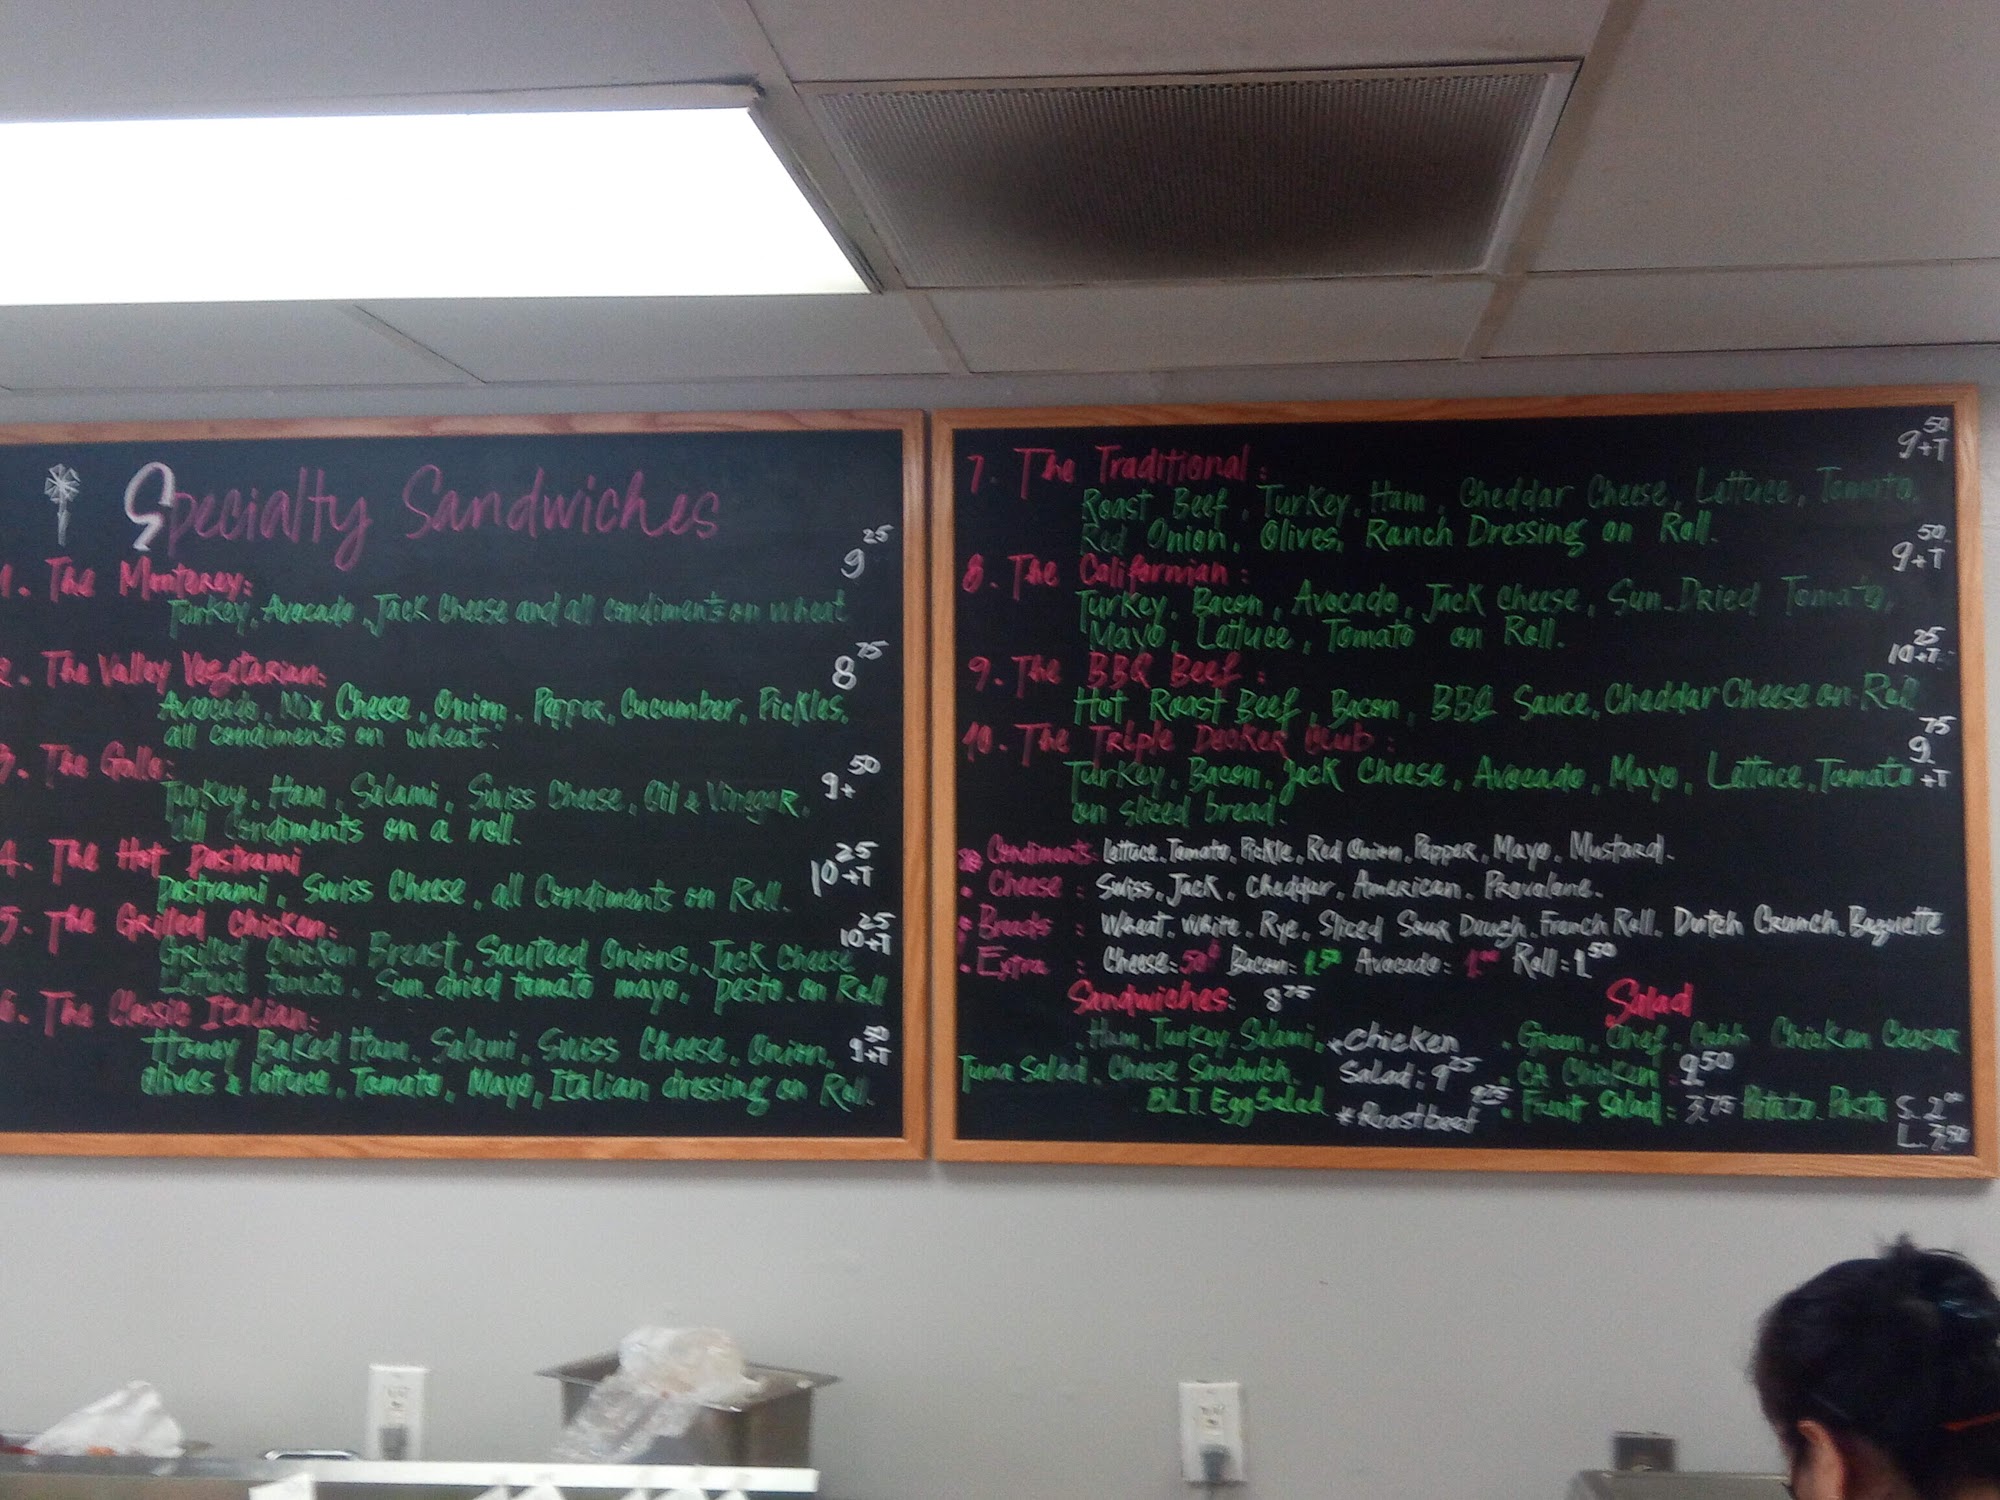 Specialty Sandwiches
1. The Monterey: 9 25
Turkey, Avocado, Jack Cheese and all condiments on wheat
2. The Valley Vegetarian: 8 75
Avocado, Mix Cheese, Onion, Pepper, Cucumber, Pickles,
all condiments on wheat.
3. The Gallo:
Turkey, Ham, Salami, Swiss Cheese, Oil & Vinegar, 9+ 50
all Condiments on a roll.
4. The Hot Pastrami 10+T 25
Pastrami, Swiss Cheese, all Condiments on Roll.
5. The Grilled Chicken: 10+T 25
Grilled Chicken Breast, Sauteed Onions, Jack Cheese
Lettuce tomato, Sun-dried tomato mayo, pesto on Roll
6. The Classic Italian:
Honey Baked Ham, Salami, Swiss Cheese, Onion, 9+T 50
Olives & lettuce, Tomato, Mayo, Italian dressing on Roll.
7. The Traditional: 9+T 50
Roast Beef, Turkey, Ham, Cheddar Cheese, Lettuce, Tomato,
Red Onion, Olives, Ranch Dressing on Roll.
8. The Californian: 9+T 50
Turkey, Bacon, Avocado, Jack cheese, Sun-Dried Tomato,
Mayo, Lettuce, Tomato on Roll.
9. The BBQ Beef: 10+T 25
Hot Roast Beef, Bacon, BBQ Sauce, Cheddar Cheese on Roll
10. The Triple Decker Club: 9 75 +T
Turkey, Bacon, Jack Cheese, Avocado, Mayo, Lettuce, Tomato
on sliced bread.
Condiments: Lettuce, Tomato, Pickle, Red Onion, Pepper, Mayo, Mustard.
Cheese: Swiss, Jack, Cheddar, American, Provolone.
Breads: Wheat, White, Rye, Sliced Sour Dough, French Roll, Dutch Crunch, Baguette
Extra: Cheese: 50¢ Bacon: 1.50 Avocado: 1.00 Roll: 1.50
Sandwiches: 8 75
Ham, Turkey, Salami,
Tuna Salad, Cheese Sandwich,
BLT, Egg Salad
* Chicken
Salad: 9 25
* Roastbeef 9 25
Salad
. Green, Chef, Cobb Chicken Ceasar
. CA Chicken: 9 50
. Fruit Salad: 3.75 Potato Pasta S. 2 00
L. 3 50